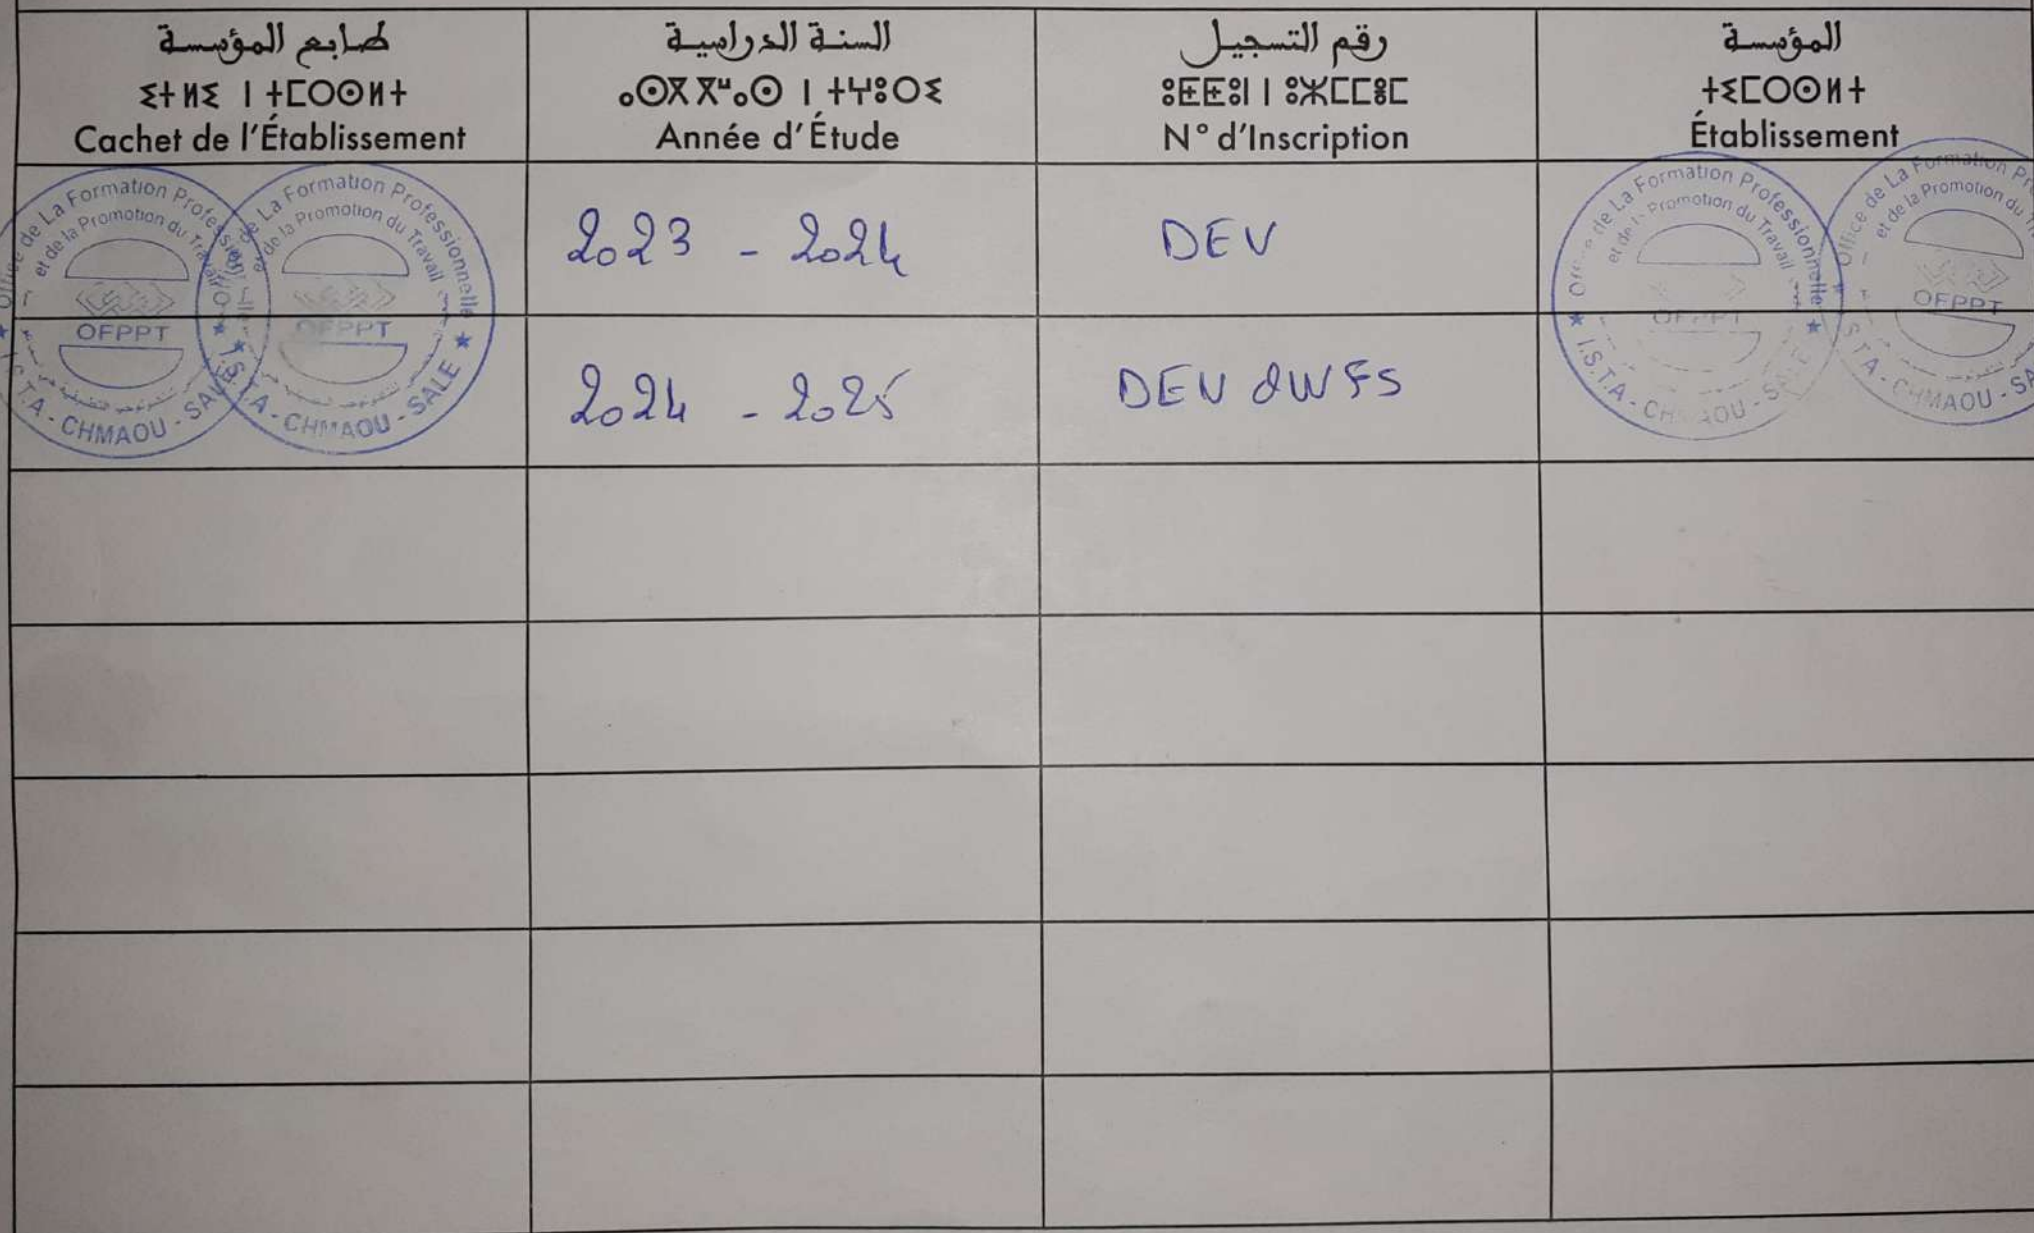 طابع المؤسسة
ⵉⵜⵍⵉ ⵏ ⵜⵎⵔⵙⵍⵜ
Cachet de l'Établissement
السنة الدراسية
ⴰⵙⴳⴳⵯⴰⵙ ⵏ ⵜⵖⵓⵔⵉ
Année d'Étude
رقم التسجيل
ⵓⵟⵟⵓⵏ ⵏ ⵓⵣⵎⵎⵓⵎ
N° d'Inscription
المؤسسة
ⵜⵉⵎⵔⵙⵍⵜ
Établissement
Office de La Formation Professionnelle
et de la Promotion du Travail
OFPPT
I.S.T.A - CHMAOU - SALE
de La Formation Professionnelle
de la Promotion du Travail
OFPPT
I.S.T.A - CHMAOU - SALE
2023 - 2024
DEV
de La Formation Professionnelle
et de la Promotion du Travail
OFPPT
I.S.T.A - CHMAOU - SALE
Office de La Formation
et de la Promotion du
OFPPT
S.T.A - CHMAOU - SA
2024 - 2025
DEV DWFS